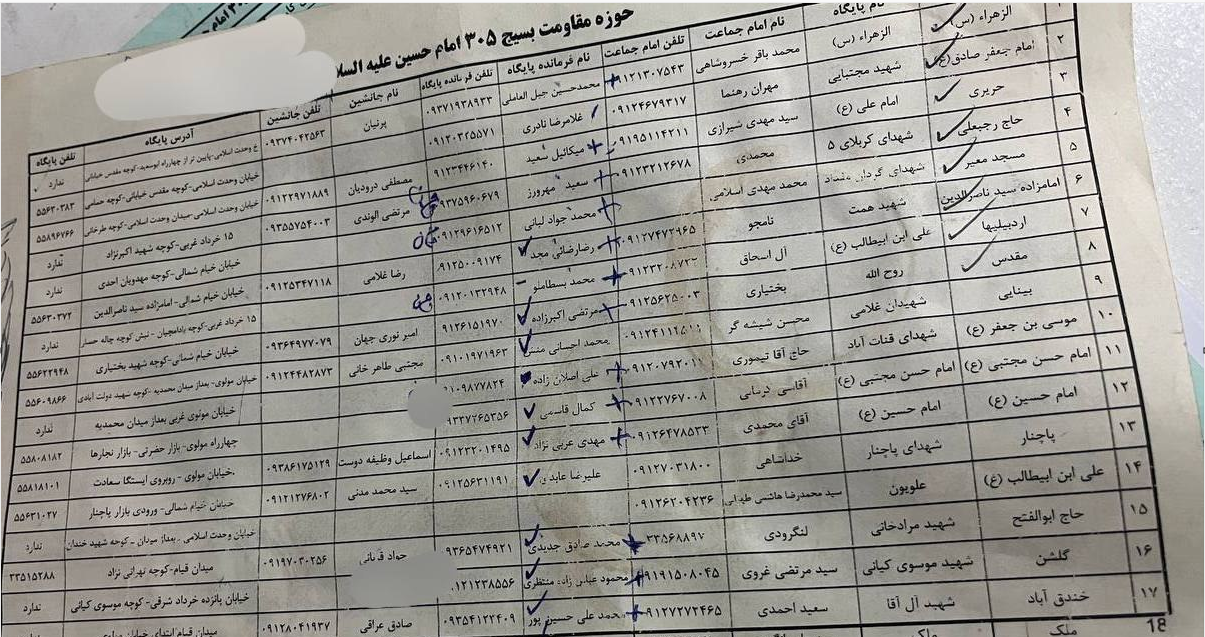 حوزه مقاومت بسیج ۳۰۵ امام حسین علیه السلا
نام پایگاه نام امام جماعت تلفن امام جماعت نام فرمانده پایگاه تلفن فرمانده پایگاه نام جانشین تلفن جانشین آدرس پایگاه تلفن پایگاه
۱ الزهراء (س) الزهراء (س) محمد باقر خسروشاهی ۰۹۱۲۱۳۰۷۵۴۳ محمدحسین جبل العاملی ۰۹۳۷۱۹۳۸۹۳۳ پرنیان ۰۹۳۷۴۰۴۲۵۶۳ خ وحدت اسلامی-پایین تر از چهارراه ابوسعید-کوچه مقدس خیابانی ندارد
۲ امام جعفر صادق(ع) شهید مجتبایی مهران رهنما ۰۹۱۲۴۶۷۹۳۱۷ غلامرضا نادری ۰۹۱۲۰۳۲۵۵۷۱ خیابان وحدت اسلامی-کوچه مقدس خیابانی-کوچه حمامی ۵۵۶۳۰۳۸۳
۳ حریری امام علی (ع) سید مهدی شیرازی ۰۹۱۹۵۱۱۴۲۱۱ میکائیل سعید ۰۹۱۲۳۴۴۶۱۴۰ مصطفی درودیان ۰۹۱۲۲۹۷۱۸۸۹ خیابان وحدت اسلامی-میدان وحدت اسلامی-کوچه طرخانی ۵۵۸۹۶۷۶۶
۴ حاج رجبعلی شهدای کربلای ۵ محمدی ۰۹۱۲۳۲۱۲۶۷۸ سعید مهرورز ۰۹۳۷۵۹۶۰۶۷۹ مرتضی الوندی ۰۹۳۵۵۷۵۴۰۰۳ ۱۵ خرداد غربی-کوچه شهید اکبرنژاد ندارد
۵ مسجد معیر شهدای گردان مقداد محمد مهدی اسلامی محمد جواد لبانی ۰۹۱۲۹۶۱۶۵۱۲ خیابان خیام شمالی-کوچه مهدویان احدی ندارد
۶ امامزاده سید ناصرالدین شهید همت نامجو ۰۹۱۲۷۴۷۲۹۶۵ رضارضائی مجد ۰۹۱۲۵۰۰۹۱۷۴ رضا غلامی ۰۹۱۲۵۳۴۷۱۱۸ خیابان خیام شمالی- امامزاده سید ناصرالدین ۵۵۶۳۰۳۷۲
۷ اردبیلیها علی ابن ابیطالب (ع) آل اسحاق محمد بسطامنو ۰۹۱۲۰۱۳۲۹۴۸ ۱۵ خرداد غربی-کوچه ندارد
۸ مقدس روح الله بختیاری ۰۹۱۲۵۶۲۵۰۰۳ مرتضی اکبرزاده ۰۹۱۲۶۱۵۱۹۷۰ امیر نوری جهان ۰۹۳۶۴۹۷۷۰۷۹ خیابان خیام شمالی-کوچه شهید بختیاری ۵۵۶۲۲۹۴۸
۹ بینایی شهیدان غلامی محسن شیشه گر محمد احسانی ۰۹۱۰۱۹۷۱۹۶۳ مجتبی طاهر خانی ۰۹۱۲۴۴۸۲۸۷۳ خیابان مولوی- بعداز میدان محمدیه -کوچه شهید دولت آبادی ۵۵۶۰۹۸۶۶
۱۰ موسی بن جعفر (ع) شهدای قنات آباد حاج آقا تیموری علی اصلان زاده خیابان مولوی غربی بعداز میدان محمدیه ندارد
۱۱ امام حسن مجتبی (ع) امام حسن مجتبی (ع) آقاسی ۰۹۱۲۲۷۶۷۰۰۸ کمال قاسمی چهارراه مولوی-بازار حضرتی- بازار نجارها ۵۵۸۰۸۱۸۲
۱۲ امام حسین (ع) امام حسین (ع) آقای محمدی ۰۹۱۲۶۴۷۸۵۳۳ مهدی عربی نژاد ۰۹۱۲۳۲۰۱۴۹۵ اسماعیل وظیفه دوست ۰۹۳۸۶۱۷۵۱۲۹ خیابان مولوی - روبروی ایستگا سعادت ۵۵۸۱۸۱۰۱
۱۳ پاچنار شهدای پاچنار خداشاهی ۰۹۱۲۷۰۳۱۸۰۰ علیرضا عابدی ۰۹۱۲۵۶۳۱۱۹۱ سید محمد مدنی ۰۹۱۲۱۲۷۶۸۰۲ خیابان خیام شمالی- ورودی بازار پاچنار ۵۵۶۳۱۰۲۷
۱۴ علی ابن ابیطالب (ع) علویون سید محمدرضا هاشمی ۰۹۱۲۶۲۰۴۲۳۶ خیابان وحدت اسلامی - بعداز میدان - کوچه شهید خندان ندارد
۱۵ حاج ابوالفتح شهید مرادخانی لنگرودی ۳۳۵۶۸۸۹۷ محمد صادق جدیدی ۰۹۳۶۵۴۷۴۹۲۱ جواد ۰۹۱۹۷۰۳۰۲۵۶ میدان قیام-کوچه تهرانی نژاد ۳۳۵۱۵۲۸۸
۱۶ گلشن شهید موسوی کیانی سید مرتضی غروی ۰۹۱۹۱۵۰۸۰۴۵ محمود عباس زاده منتظری خیابان پانزده خرداد شرقی- کوچه موسوی کیانی ندارد
۱۷ خندق آباد شهید آل آقا سعید احمدی ۰۹۱۲۷۲۷۲۴۶۵ محمد علی حسین پور ۰۹۳۵۴۱۲۲۴۰۹ صادق عراقی ۰۹۱۲۸۰۴۱۹۳۷ میدان قیام ابتدای خیابان
18 ملک